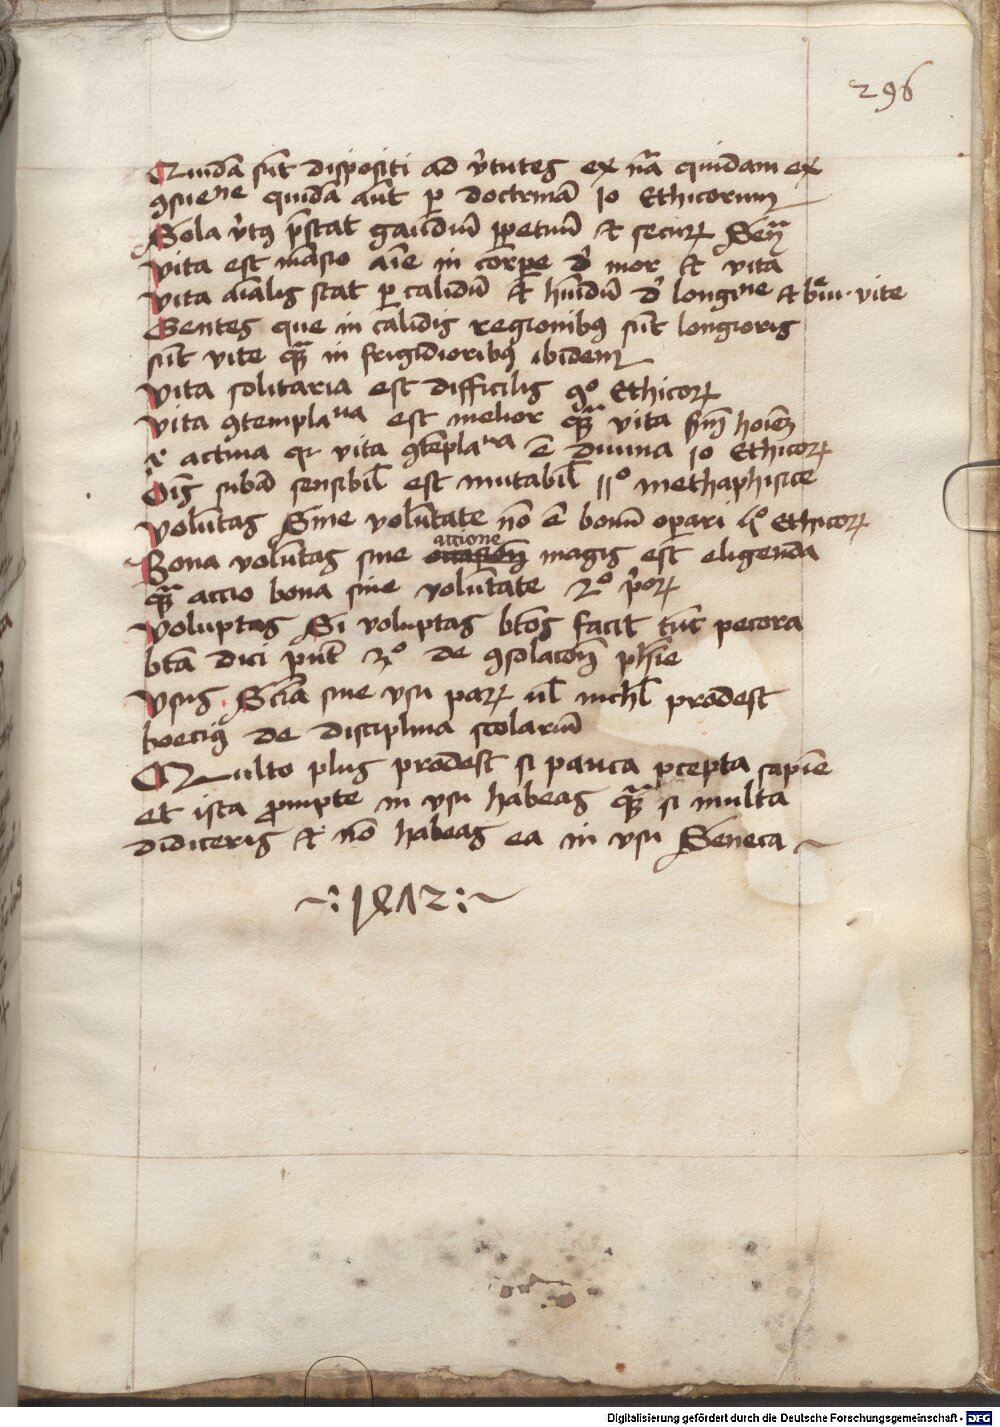 296
Quidā sūt dispositi ad v̓tuteʒ ex nā̄ quidam ex
ꝯsueⁿᵉ quidā aūt ꝑ doctrinā 10 Ethicorum
Sola v̓tꝰ p̄stat gaudiū ꝑpetuū et securꝝ Seneᷓ
Vita est māsio aīe in corꝑe d̓ mor et vita
Vita aīalis stat ꝑ calidū et hūidū d̓ longiⁿᵉ et breͥui vite
Gentes que in calidis regionibꝰ sūt longioris
sūt vite qᷓꝫ in frigidioribꝰ ibidem
Vita solitaria est difficilis 9º Ethicoꝝ
Vita ꝯtemplaᵘᵃ est melior qᷓꝫ vita scḋm hoīem
actiua qꝛ vita ꝯtēplaᵘᵃ ē diuina 10 Ethicoꝝ
Oīs subā sensibil̄ est mutabil̄ 11º methaphisice
Volūtas Sine volūtate nō ē bonū operari Ethicoꝝ
accione
Bona volūtas sine occasiōe magis est eligenda
qᷓꝫ accio bona sine volūtate 2º p̓oꝝ
Voluptas Si voluptas btōs facit tūc pecora
btā dici pn̄t 3º de ꝯsolacōe ph̄ie
Vsus Sciā sine vsu paꝝ ul̄ nichl̄ prodest
boeciꝰ de disciplina scolariū
Multo plus prodest si pauca p̄cepta sapīe
et ista ꝓmpte in vsu habeas qᷓꝫ si multa
didiceris et nō habeas ea in vsu Seneca
~:1472:~
Digitalisierung gefördert durch die Deutsche Forschungsgemeinschaft - DFG